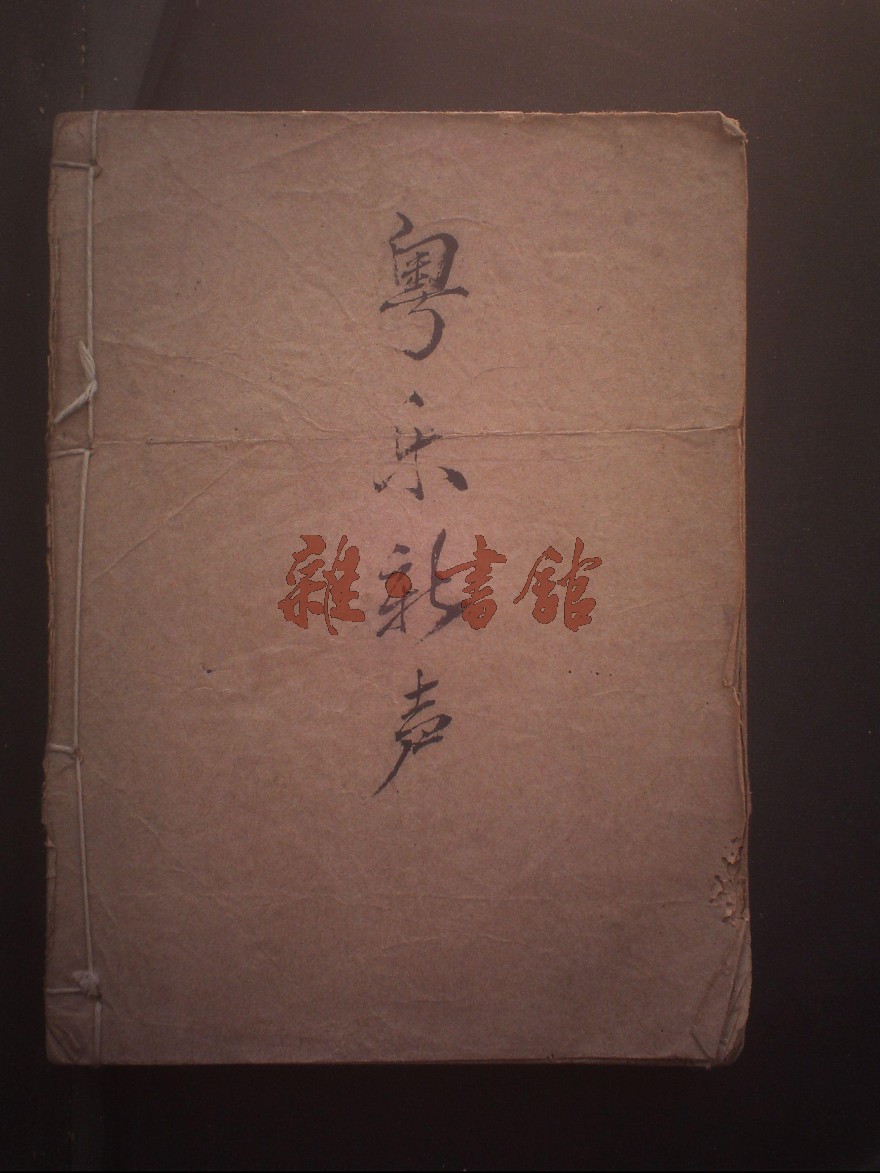 粤乐新声
雜·書館